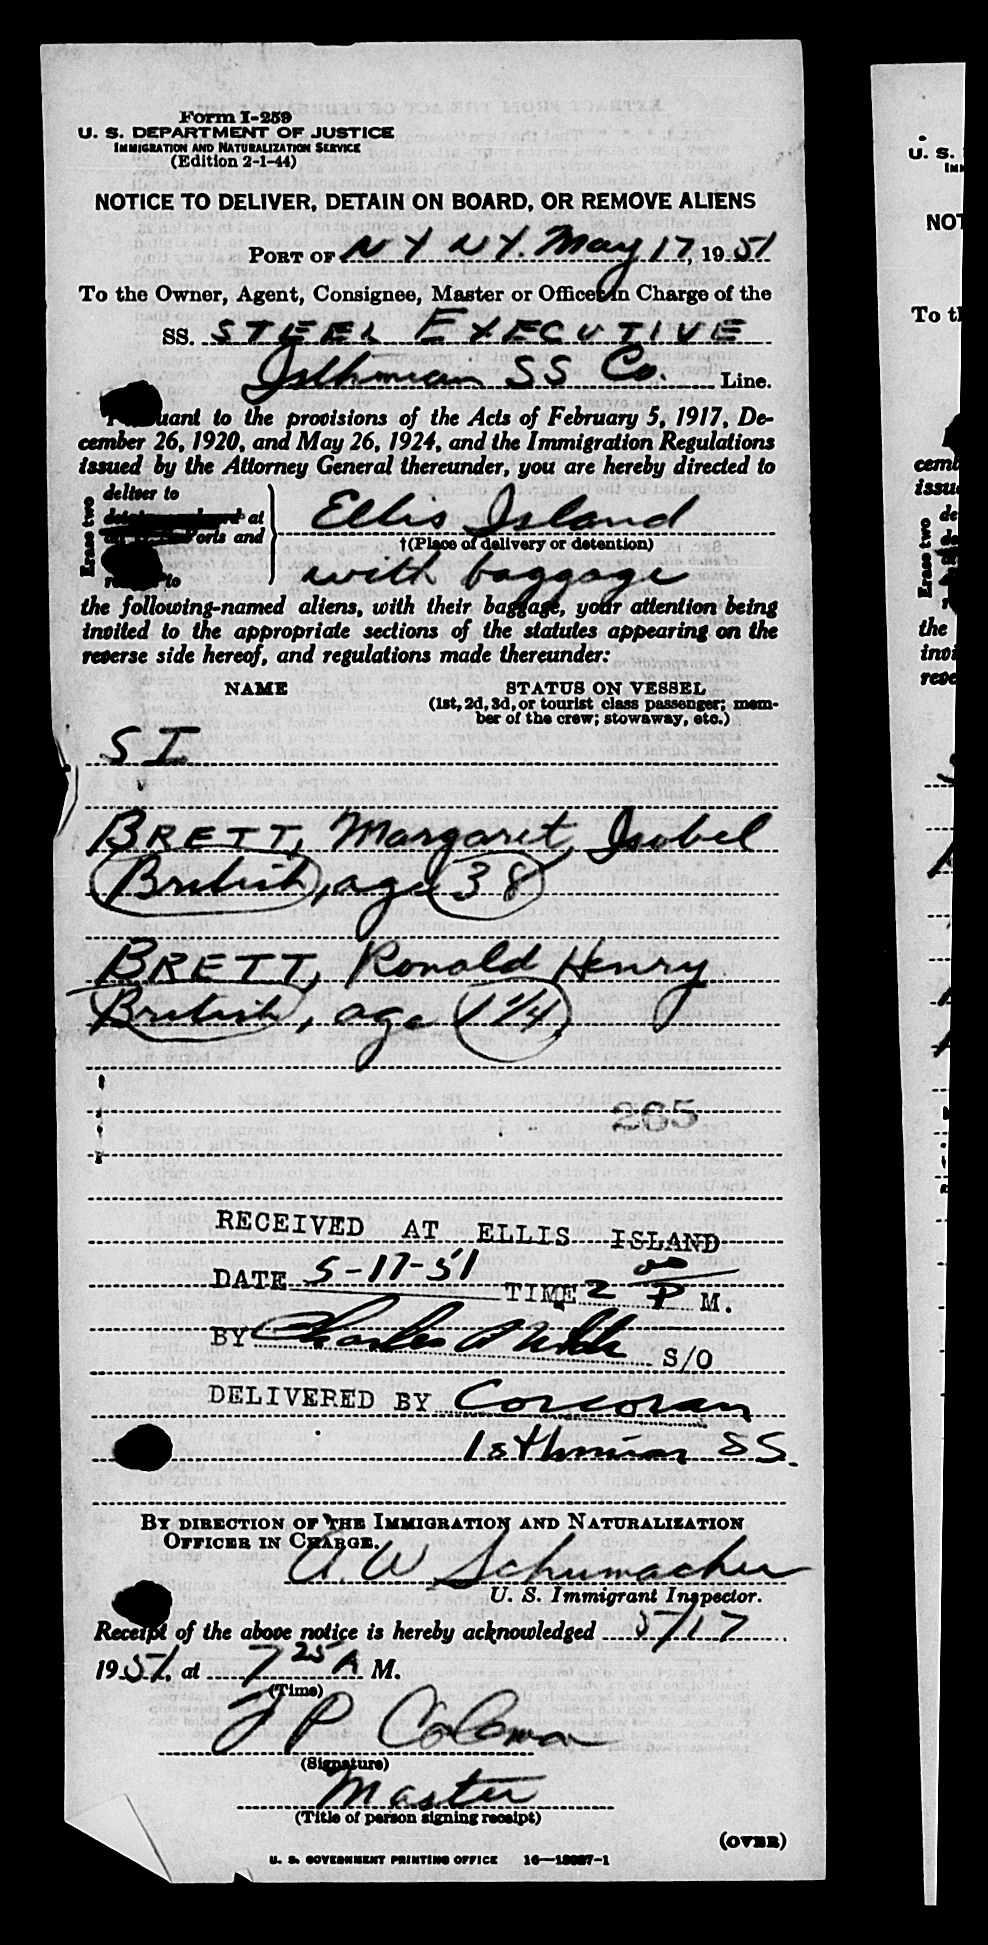 Form I-259
U. S. DEPARTMENT OF JUSTICE
IMMIGRATION AND NATURALIZATION SERVICE
(Edition 2-1-44)
NOTICE TO DELIVER, DETAIN ON BOARD, OR REMOVE ALIENS
PORT OF N Y N Y. May 17, 1951
To the Owner, Agent, Consignee, Master or Officer in Charge of the
SS. STEEL EXECUTIVE
Isthmian SS Co. Line.
uant to the provisions of the Acts of February 5, 1917, De-
cember 26, 1920, and May 26, 1924, and the Immigration Regulations
issued by the Attorney General thereunder, you are hereby directed to
Erase two
deliver to
at
and
to
Ellis Island
†(Place of delivery or detention)
with baggage
the following-named aliens, with their baggage, your attention being
invited to the appropriate sections of the statutes appearing on the
reverse side hereof, and regulations made thereunder:
NAME STATUS ON VESSEL
(1st, 2d, 3d, or tourist class passenger; mem-
ber of the crew; stowaway, etc.)
S I
BRETT, Margaret Isobel
British, age 38
BRETT, Ronald Henry
British, age 1 1/4
265
RECEIVED AT ELLIS ISLAND
DATE 5-17-51 TIME 2 00 P M.
BY Charles S/O
DELIVERED BY Corcoran
Isthmian SS.
BY DIRECTION OF THE IMMIGRATION AND NATURALIZATION
OFFICER IN CHARGE.
A. W. Schumacher
U. S. Immigrant Inspector.
Receipt of the above notice is hereby acknowledged 5/17
1951, at 7 25 A M.
(Time)
J P Coleman
(Signature)
Master
(Title of person signing receipt)
(OVER)
U. S. GOVERNMENT PRINTING OFFICE 16—13087-1
U. S.
NOT
To th
cemb
issu
Erase two
de
the
invi
reve